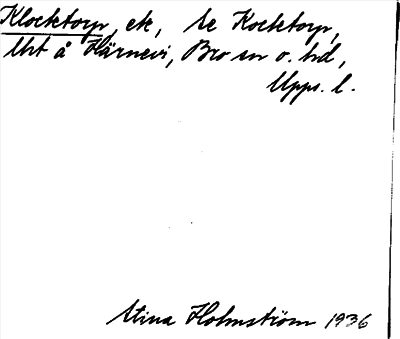 Klocktorp, etc, se Kocktorp,
Utt å Härnevi, Bro sn o. hd,
Upps. l.
Stina Holmström 1936